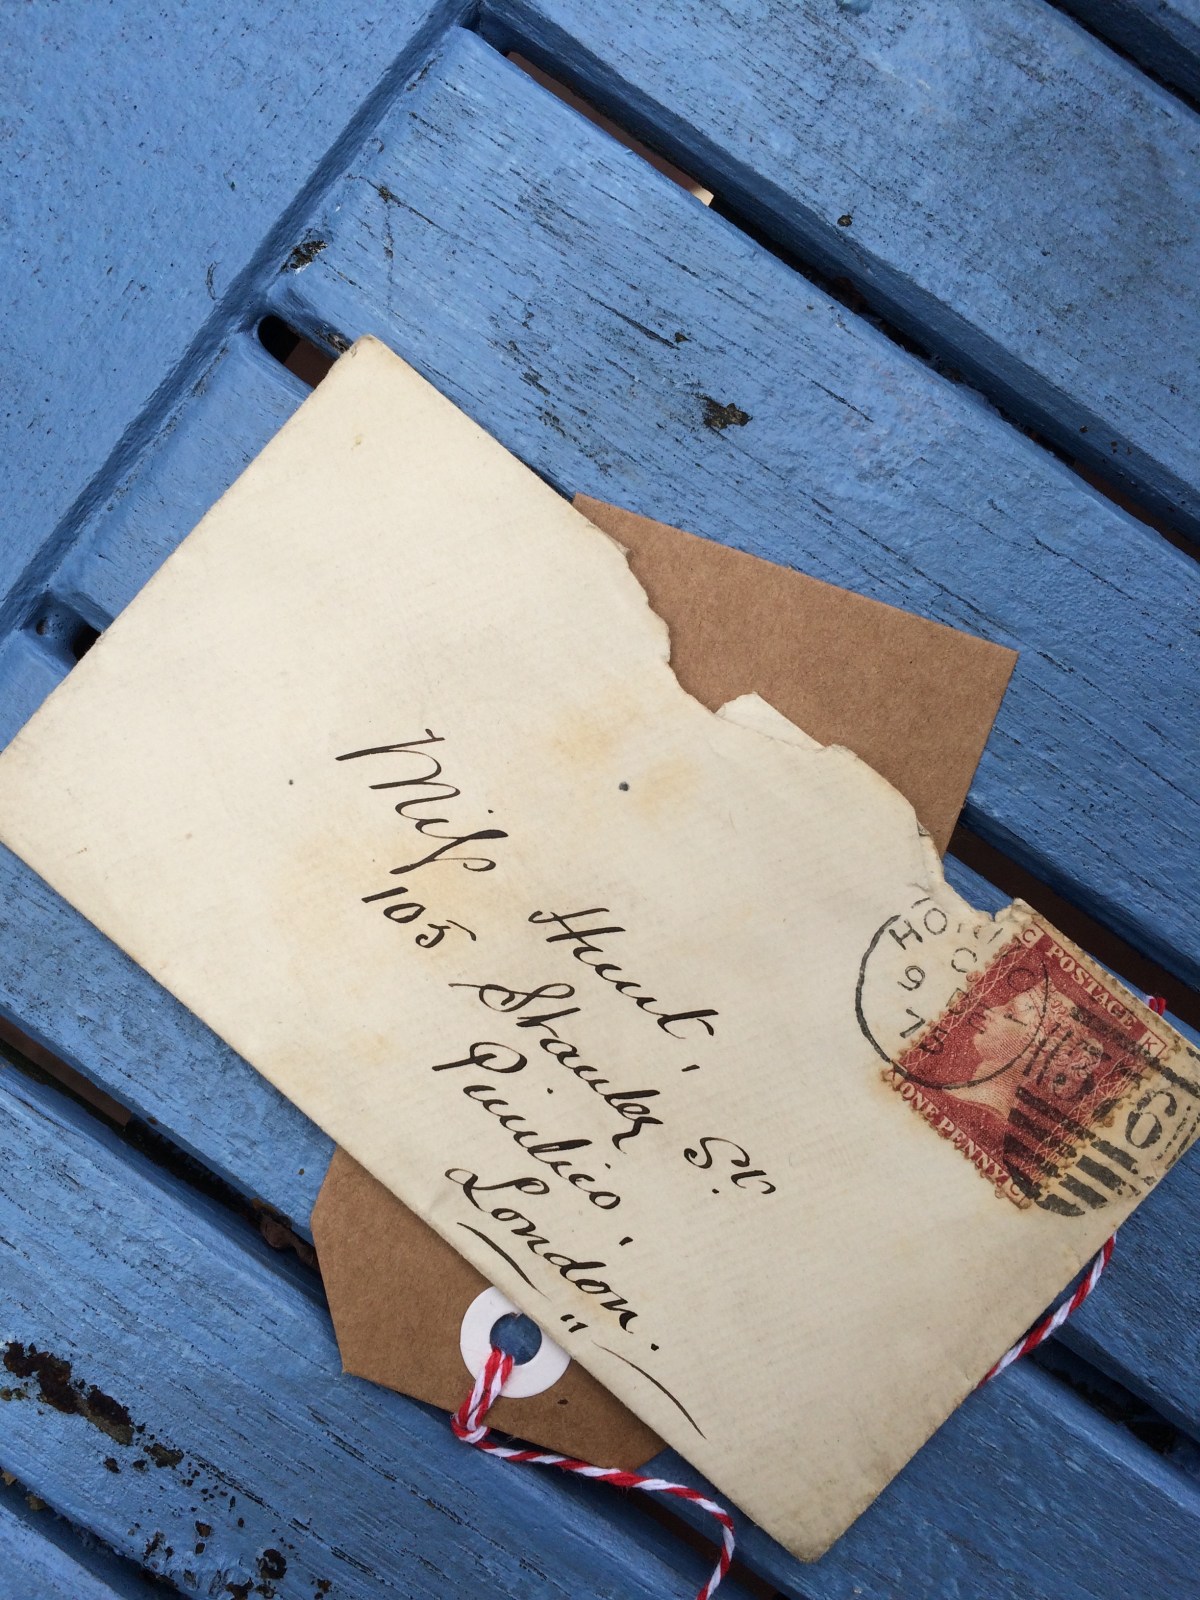 Miss Hunt,
105 Stanley St.
Pimlico,
London.
HO
C
9
75
C POSTAGE K
ONE PENNY
6